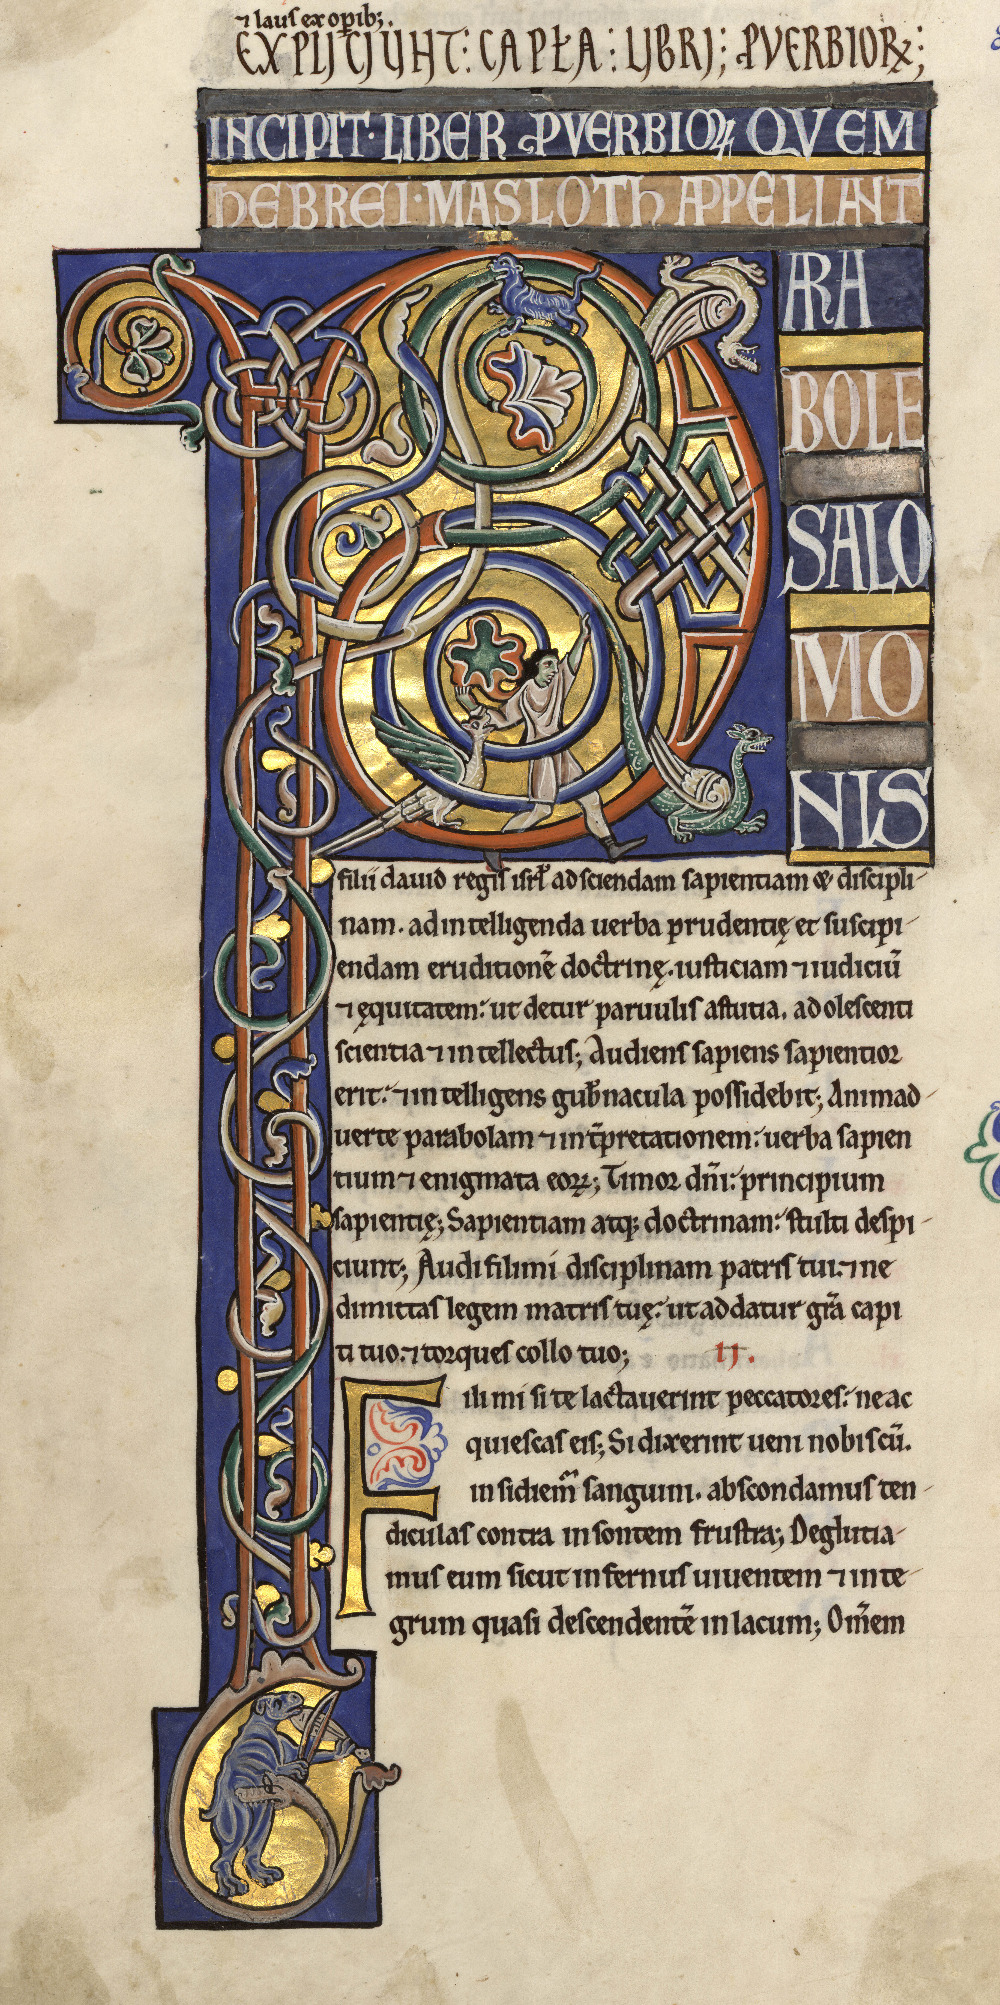 ⁊ laus ex opib;.
EXPLICIUNT: CAPŁA: LIBRI; PVERBIORꝜ;
INCIPIT· LIBER PVERBIOꝜ QVEM
hEBREI· MASLOTh APPELLANT
PARA
BOLE
SALO
MO
NIS
filii dauid regis isrł ad sciendam sapientiam & discipli-
nam. ad intelligenda uerba prudentię et suscipi-
endam eruditionē doctrinę. iusticiam ⁊ iudiciū
⁊ ęquitatem: ut detur paruulis astutia. adolescenti
scientia ⁊ intellectus; Audiens sapiens sapientior
erit: ⁊ intelligens gub̄nacula possidebit; Animad-
uerte parabolam ⁊ int̄pretationem: uerba sapien
tium ⁊ enigmata eoꝝ; Timor dn̄i: principium
sapientię; Sapientiam atq; doctrinam: stulti despi-
ciunt; Audi fili mi disciplinam patris tui: ⁊ ne
dimittas legem matris tuę: ut addatur gr̄a capi
ti tuo: ⁊ torques collo tuo; II.
Fili mi si te lactauerint peccatores: ne ac
quiescas eis; Si dixerint ueni nobiscū.
insidiem̄ sanguini. abscondamus ten-
diculas contra insontem frustra; Deglutia-
mus eum sicut infernus uiuentem ⁊ inte-
grum quasi descendentē in lacum; Om̄em